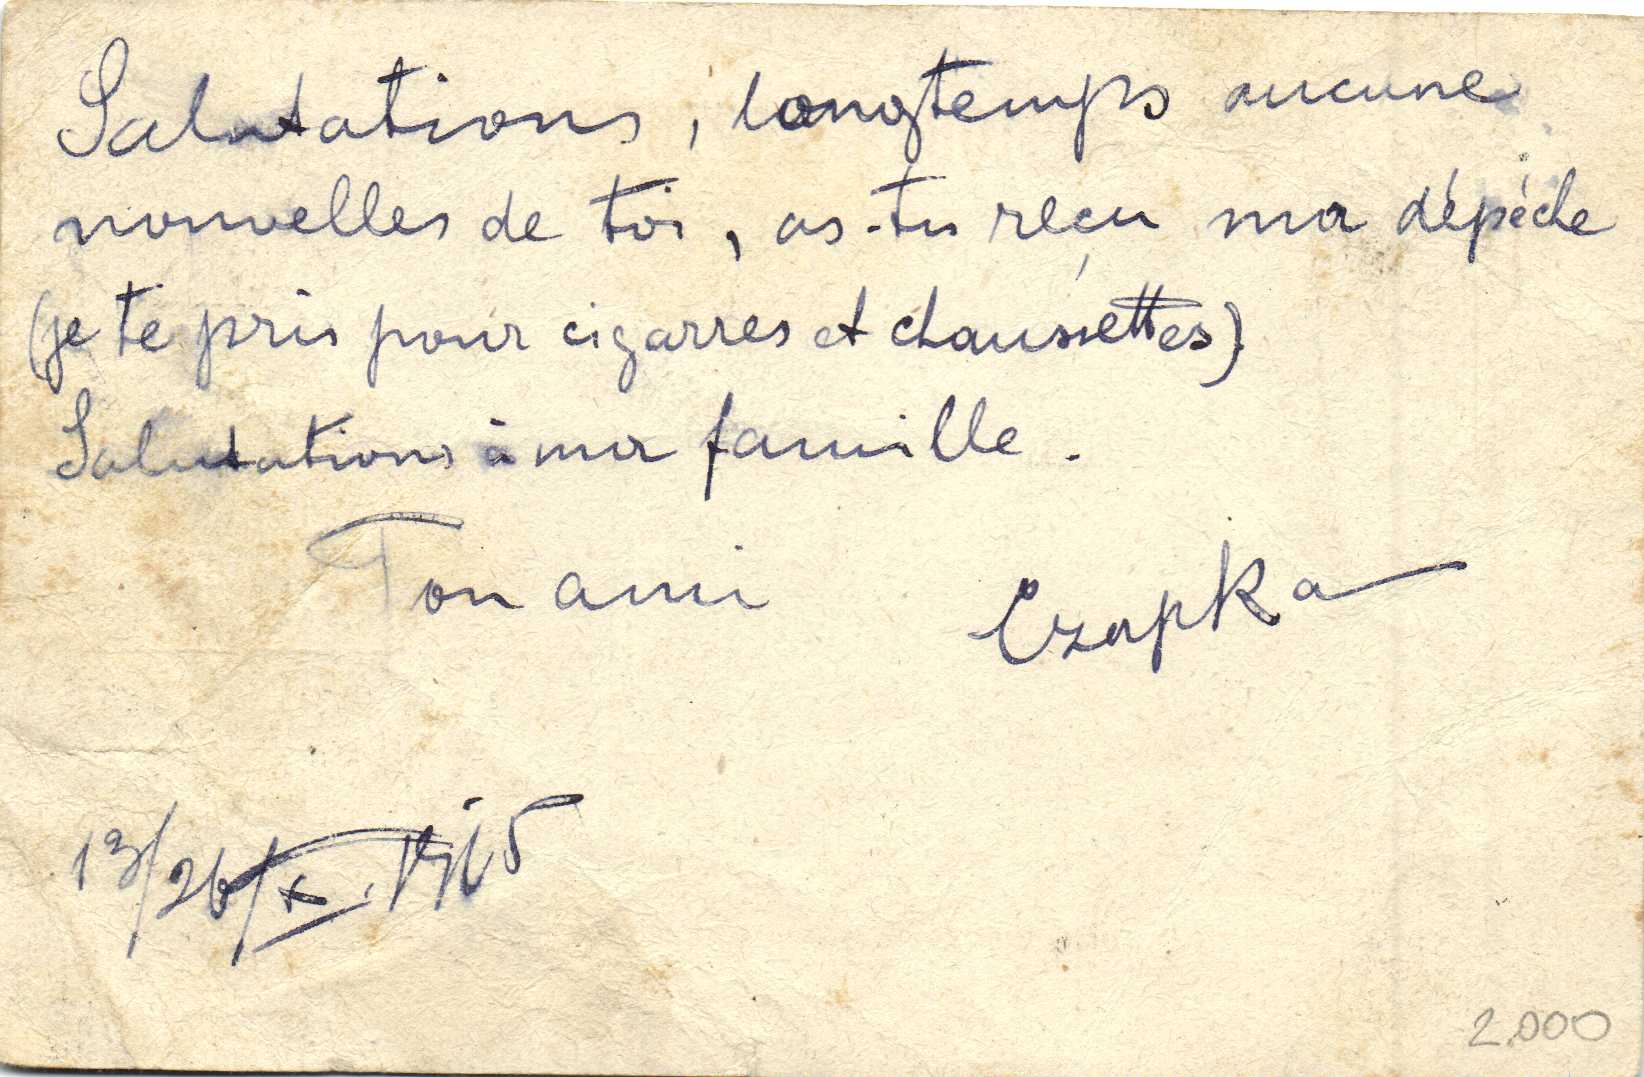 Salutations, longtemps aucune
nouvelles de toi, as-tu reçu ma dépéche
(je te pris pour cigarres et chaussettes)
Salutations à ma famille.
Ton ami Czapka
13/26/X. 1915
2.000